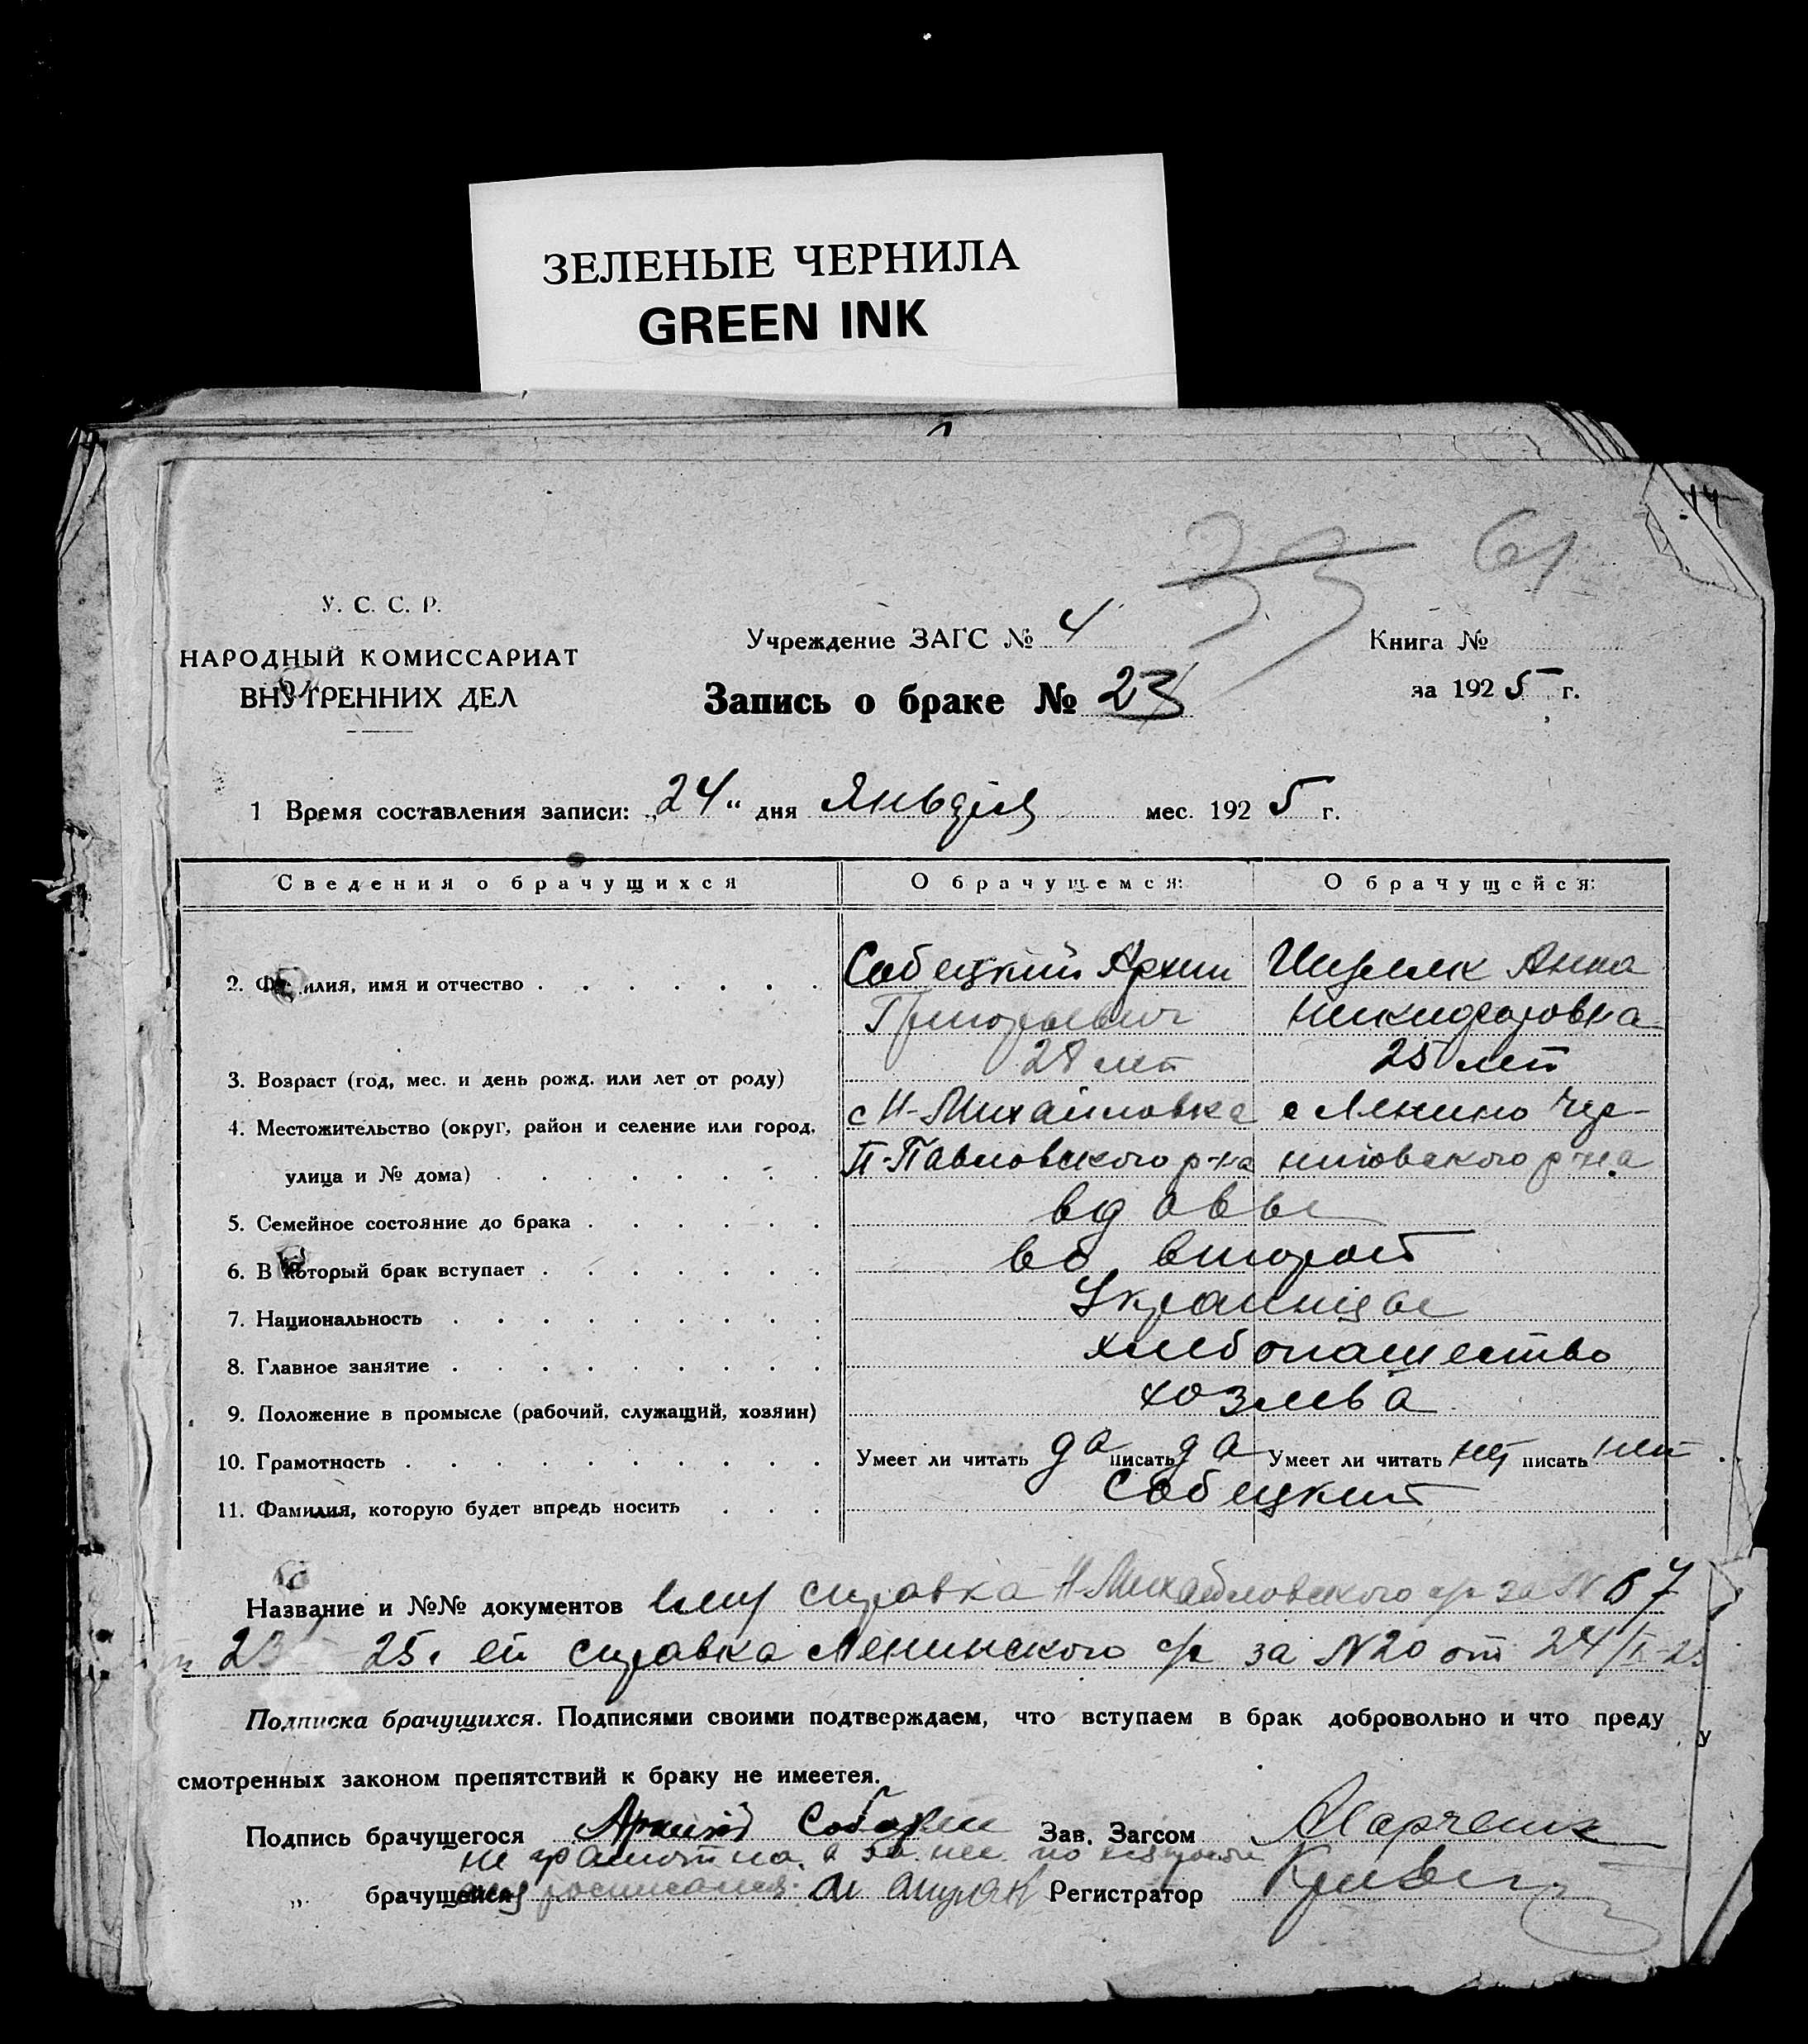 ЗЕЛЕНЫЕ ЧЕРНИЛА
GREEN INK
14
33 61
У. С. С. Р.
НАРОДНЫЙ КОМИССАРИАТ
ВНУТРЕННИХ ДЕЛ
Учреждение ЗАГС № 4
Книга №
Запись о браке № 23
за 1925 г.
1 Время составления записи: „24“ дня Января мес. 1925 г.
Сведения о брачущихся О брачущемся: О брачущейся:
2. Фамилия, имя и отчество Собецкий Архип Анна
Григорьевич Никифоровна
3. Возраст (год, мес. и день рожд. или лет от роду) 28 лет 25 лет
4. Местожительство (округ, район и селение или город, с Н-Михайловка с Ленино Чер-
улица и № дома) П-Павловского р-на ниговского р-на
5. Семейное состояние до брака вдовы
6. В который брак вступает во второй
7. Национальность Украинцы
8. Главное занятие хлебопашество
9. Положение в промысле (рабочий, служащий, хозяин) хозяева
10. Грамотность Умеет ли читать да писать да Умеет ли читать нет писать нет
11. Фамилия, которую будет впредь носить Собецкий
Название и №№ документов ему справка Н-Михайловского с/р за № 67
23 25г ей справка Ленинского с/р за N 20 от 24/I-25
Подписка брачущихся. Подписями своими подтверждаем, что вступаем в брак добровольно и что преду
смотренных законом препятствий к браку не имеетея.
Подпись брачущегося Зав. Загсом Марченко
не грамотна а за нее по
„ брачущейся росписался Регистратор